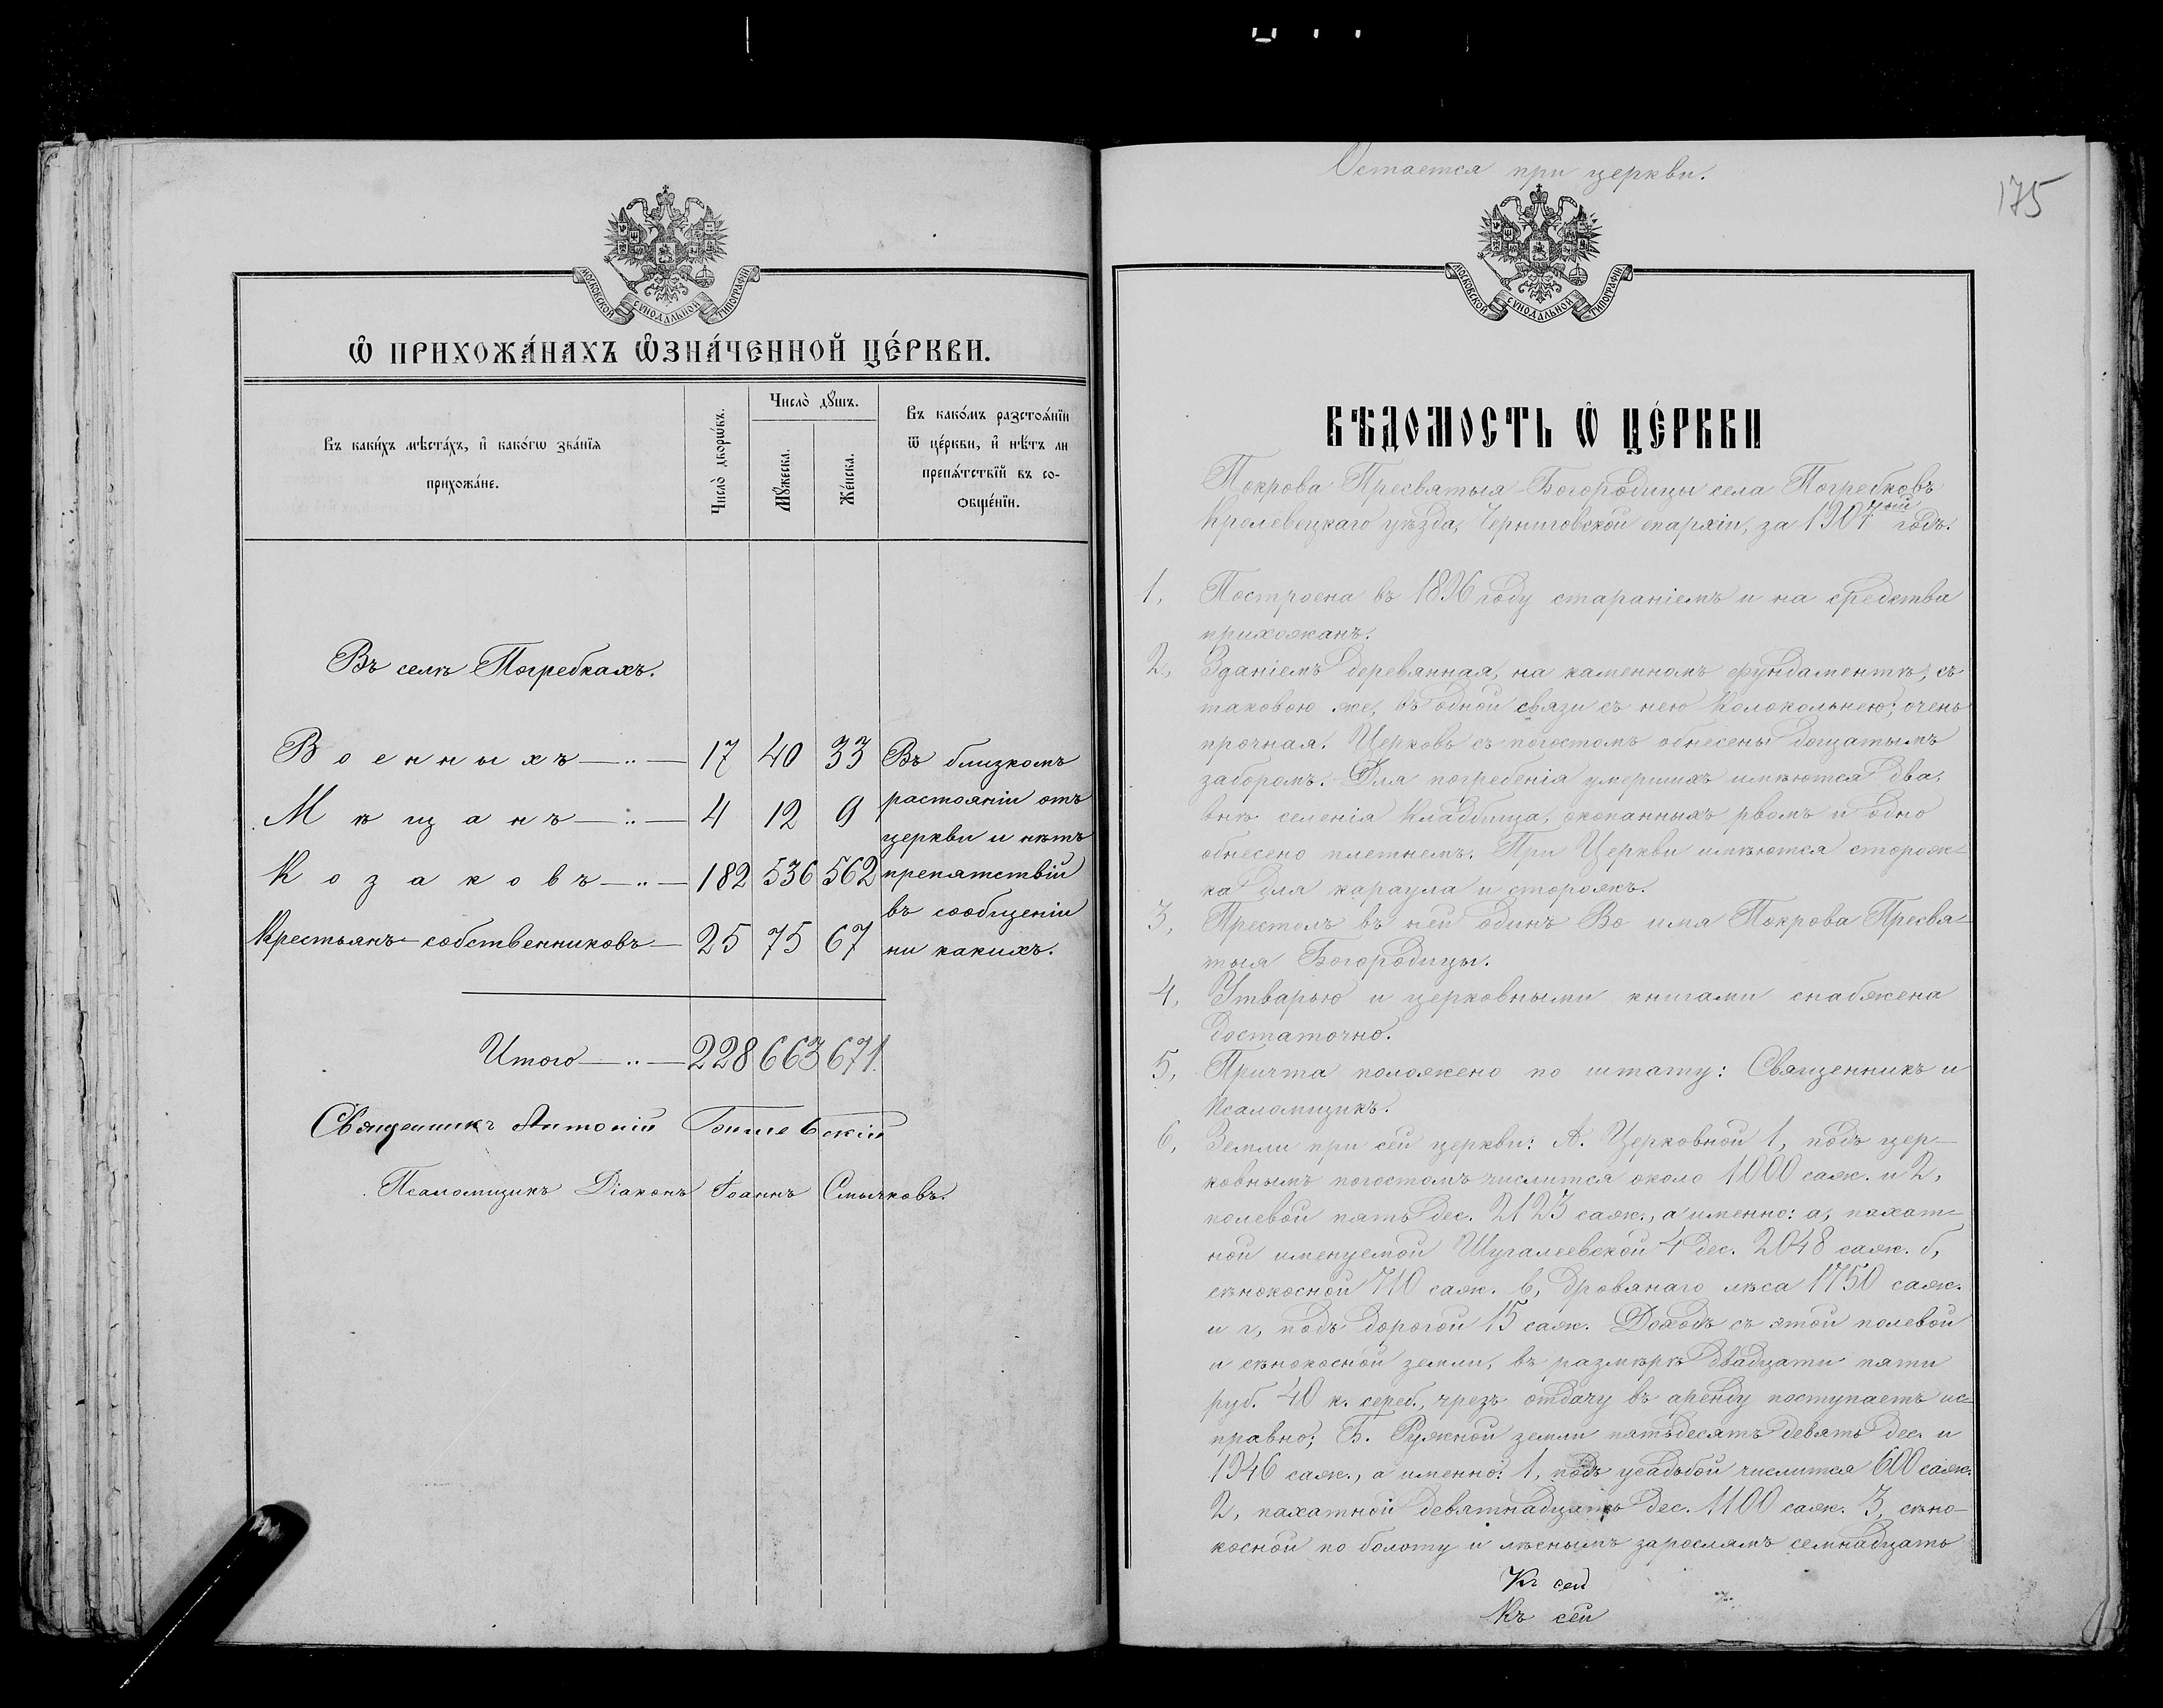 МОСКОВСКОЙ СУНОДАЛЬНОЙ ТИПОГРАФІИ
Ѽ ПРИХОЖА́НАХЪ Ѡ҆ЗНА́ЧЕННОЙ ЦЕ́РКВИ.
Въ каки́хъ мѣста́хъ, и҆ како́гѡ зва́нїѧ
прихожа́не.
Число̀ дворѡ́въ.
Число̀ дꙋ́шъ.
Мꙋ́жеска.
Же́нска.
Въ како́мъ разстоѧ́нїи
ѿ це́ркви, и҆ нѣ́тъ ли
препѧ́тствїй въ со-
ѻбще́нїи.
Въ селѣ Погребкахъ.
Военныхъ—..— 17 40 33 Въ близкомъ
растояніи отъ
Мѣщанъ—..— 4 12 9
церкви и нѣтъ
Козаковъ—..— 182 536 562 препятствій
въ сообщеніи
Крестьянъ-собственниковъ— 25 75 67 ни какихъ.
Итого—..— 228 663 671.
Священникъ Антоній
Псаломщикъ Діаконъ Іоаннъ Смычковъ.
Остается при церкви.
175
МОСКОВСКОЙ СУНОДАЛЬНОЙ ТИПОГРАФІИ
ВѢДОМОСТЬ Ѽ ЦЕ́РКВИ
Покрова Пресвятыя Богородицы села Погребковъ
Кролевецкаго уѣзда, Черниговской епархіи, за 1907ой годъ.
1, Построена въ 1896 году стараніемъ и на средства
прихожанъ.
2, Зданіемъ деревянная, на каменномъ фундаментѣ, съ
таковою же, въ одной связи съ нею колокольнею; очень
прочная. Церковь съ погостомъ обнесены дощатымъ
заборомъ. Для погребенія умершихъ имѣются два,
внѣ селенія кладбища, окопанныхъ рвомъ и одно
обнесено плетнемъ. При Церкви имѣются сторож-
ка для караула и сторожъ.
3, Престолъ въ ней одинъ Во имя Покрова Пресвя-
тыя Богородицы.
4, Утварью и церковными книгами снабжена
достаточно.
5, Причта положено по штату: Священникъ и
Псаломщикъ.
6, Земли при сей церкви: А. Церковной 1, подъ цер-
ковнымъ погостомъ числится около 1000 саж. и 2,
полевой пять дес. 2123 саж., а именно: а, пахат-
ной именуемой Шугалеевской 4 дес. 2048 саж. б,
сѣнокосной 710 саж. в, дровянаго лѣса 1750 саж.
и г, подъ дорогой 15 саж. Доходъ съ этой полевой
и сѣнокосной земли, въ размѣрѣ двадцати пяти
руб. 40 к. сереб., чрезъ отдачу въ аренду поступаетъ ис-
правно; Б. Ружной земли пятьдесятъ девять дес. и
1946 саж., а именно: 1, подъ усадьбой числится 600 саж.
2, пахатной девятнадцать дес. 1100 саж. 3, сѣно-
косной по болоту и лѣснымъ зарослямъ семнадцать
Къ сей
Къ сей